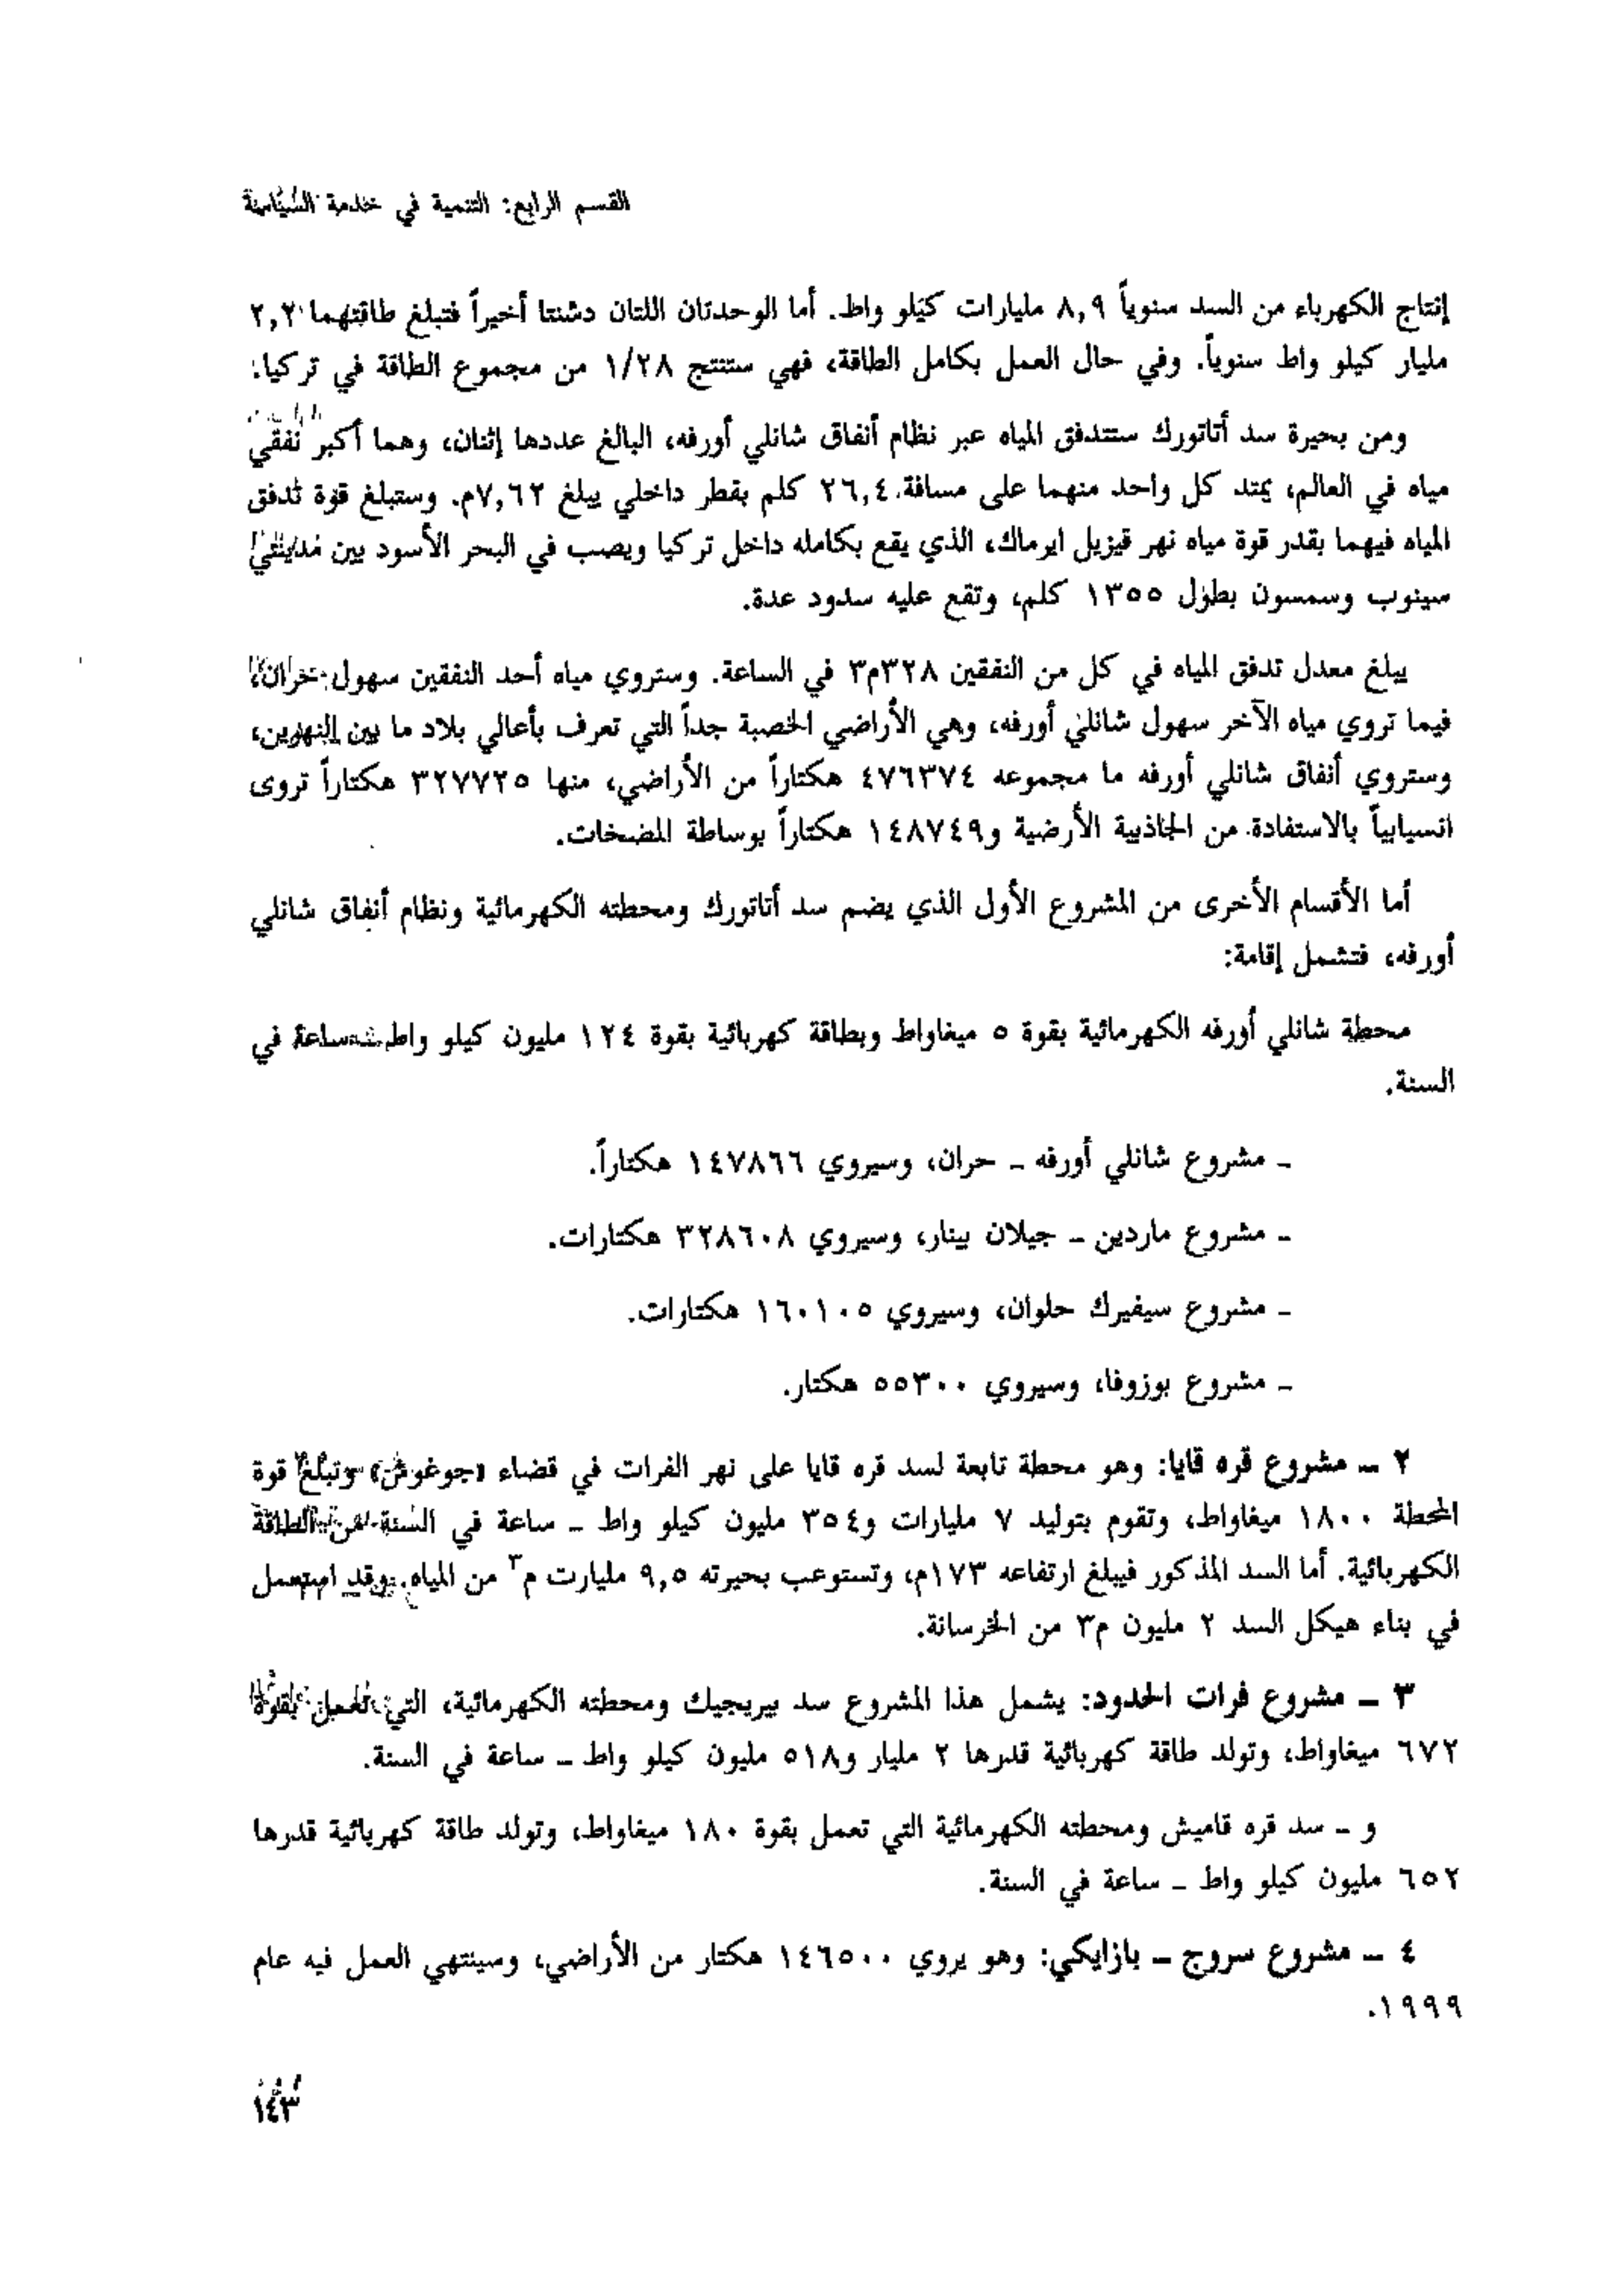 القسم الرابع: التنمية في خدمة السياسة
إنتاج الكهرباء من السد سنوياً ٨,٩ مليارات كيلو واط. أما الوحدتان اللتان دشنتا أخيراً فتبلغ طاقتهما ٢,٢
مليار كيلو واط سنوياً. وفي حال العمل بكامل الطاقة، فهي ستنتج ١/٢٨ من مجموع الطاقة في تركيا.
ومن بحيرة سد أتاتورك ستتدفق المياه عبر نظام أنفاق شانلي أورفه، البالغ عددها إثنان، وهما أكبر نفقي
مياه في العالم، يمتد كل واحد منهما على مسافة ٢٦,٤ كلم بقطر داخلي يبلغ ٧,٦٢م. وستبلغ قوة تدفق
المياه فيهما بقدر قوة مياه نهر قيزيل ايرماك، الذي يقع بكامله داخل تركيا ويصب في البحر الأسود بين مدينتي
سينوب وسمسون بطول ١٣٥٥ كلم، وتقع عليه سدود عدة.
يبلغ معدل تدفق المياه في كل من النفقين ٣٢٨م٣ في الساعة. وستروي مياه أحد النفقين سهول حران،
فيما تروي مياه الآخر سهول شانلي أورفه، وهي الأراضي الخصبة جداً التي تعرف بأعالي بلاد ما بين النهرين،
وستروي أنفاق شانلي أورفه ما مجموعه ٤٧٦٣٧٤ هكتاراً من الأراضي، منها ٣٢٧٧٢٥ هكتاراً تروى
انسيابياً بالاستفادة من الجاذبية الأرضية و١٤٨٧٤٩ هكتاراً بوساطة المضخات.
أما الأقسام الأخرى من المشروع الأول الذي يضم سد أتاتورك ومحطته الكهرمائية ونظام أنفاق شانلي
أورفه، فتشمل إقامة:
محطة شانلي أورفه الكهرمائية بقوة ٥ ميغاواط وبطاقة كهربائية بقوة ١٢٤ مليون كيلو واط ساعة في
السنة.
ـ مشروع شانلي أورفه ـ حران، وسيروي ١٤٧٨٦٦ هكتاراً.
ـ مشروع ماردين ـ جيلان بينار، وسيروي ٣٢٨٦٠٨ هكتارات.
ـ مشروع سيفيرك حلوان، وسيروي ١٦٠١٠٥ هكتارات.
ـ مشروع بوزوفا، وسيروي ٥٥٣٠٠ هكتار.
٢ ـ مشروع قره قايا: وهو محطة تابعة لسد قره قايا على نهر الفرات في قضاء «جوغوش» وتبلغ قوة
المحطة ١٨٠٠ ميغاواط، وتقوم بتوليد ٧ مليارات و٣٥٤ مليون كيلو واط ـ ساعة في السنة من الطاقة
الكهربائية. أما السد المذكور فيبلغ ارتفاعه ١٧٣م، وتستوعب بحيرته ٩,٥ مليارت م٣ من المياه. وقد استعمل
في بناء هيكل السد ٢ مليون م٣ من الخرسانة.
٣ ـ مشروع فرات الحدود: يشمل هذا المشروع سد بيريجيك ومحطته الكهرمائية، التي تعمل بقوة
٦٧٢ ميغاواط، وتولد طاقة كهربائية قدرها ٢ مليار و٥١٨ مليون كيلو واط ـ ساعة في السنة.
و ـ سد قره قاميش ومحطته الكهرمائية التي تعمل بقوة ١٨٠ ميغاواط، وتولد طاقة كهربائية قدرها
٦٥٢ مليون كيلو واط ـ ساعة في السنة.
٤ ـ مشروع سروج ـ بازايكي: وهو يروي ١٤٦٥٠٠ هكتار من الأراضي، وسينتهي العمل فيه عام
١٩٩٩.
١٤٣